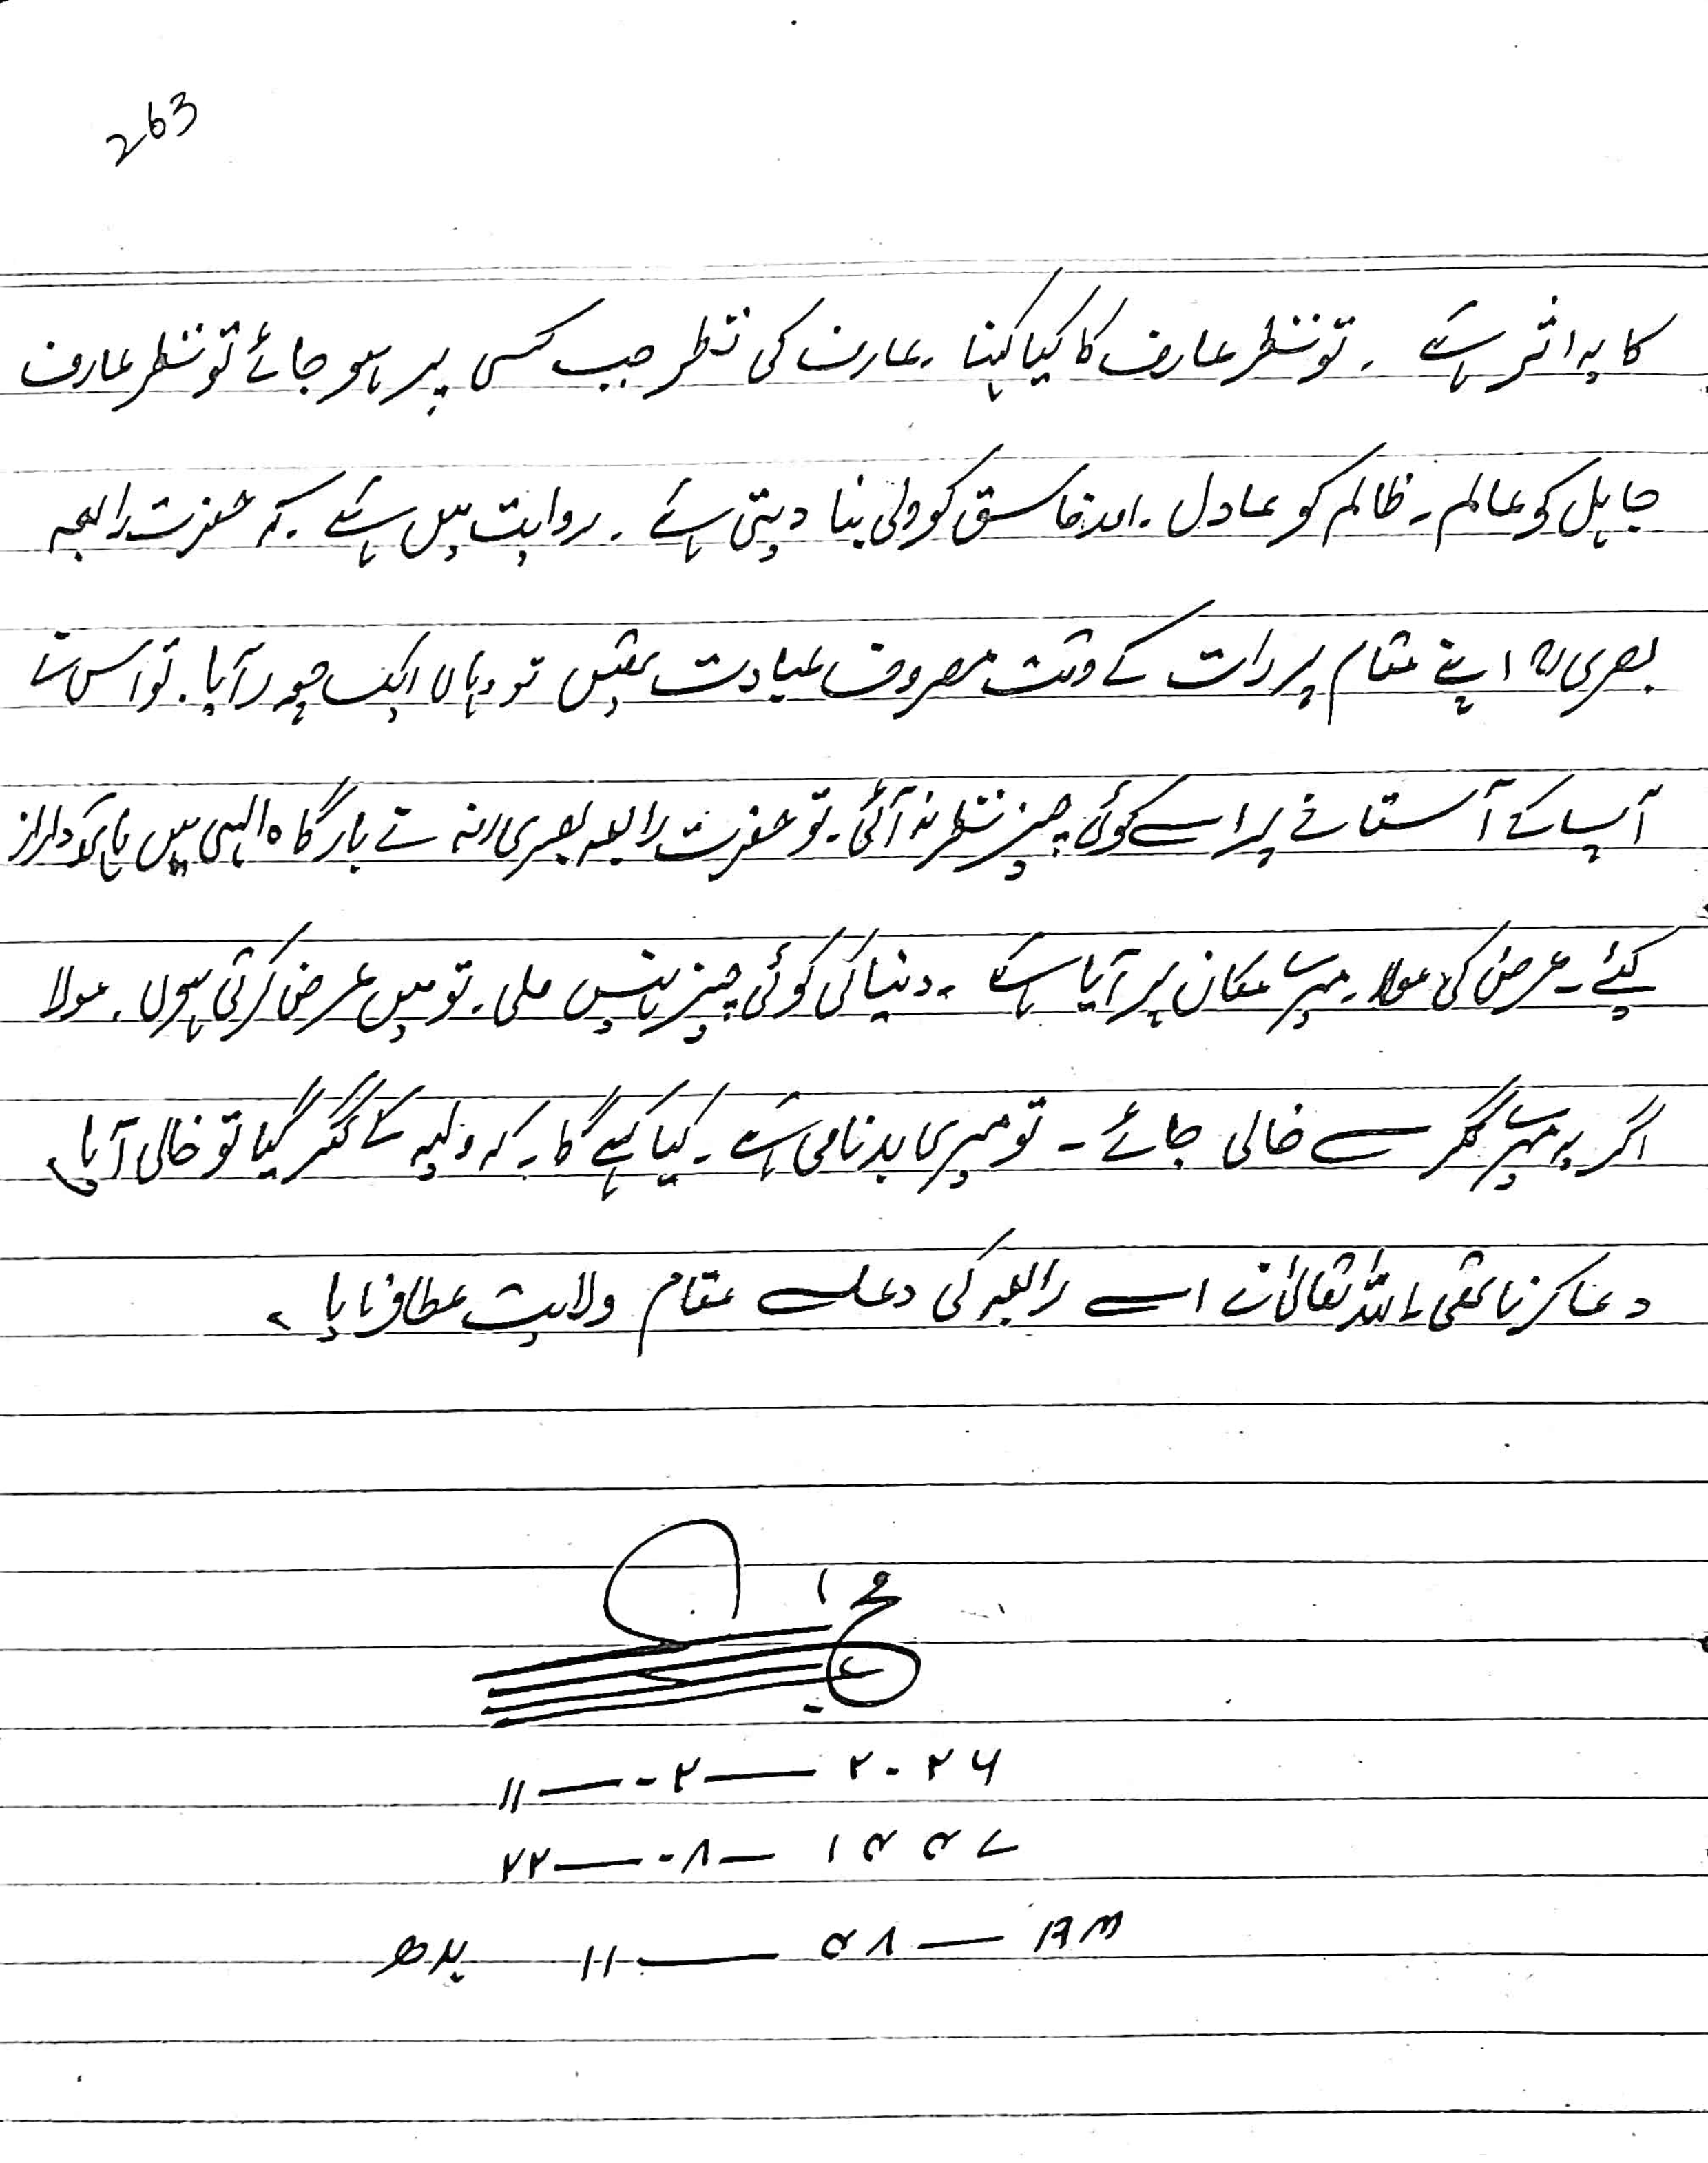 263
کا یہ اثر ہے ۔ تو نظر عارف کا کیا کہنا ۔ عارف کی نظر جب کسی پر ہو جائے تو نظر عارف
جاہل کو عالم ۔ ظالم کو عادل ۔ اور فاسق کو ولی بنا دیتی ہے ۔ روایت میں ہے ۔ کہ حضرت رابعہ
بصری رح اپنے مقام پر رات کے وقت مصروف عبادت تھیں تو وہاں ایک چور آیا ۔ تو اس نے
آپ کے آستانے پر اسے کوئی چیز نظر نہ آئی ۔ تو حضرت رابعہ بصری رح نے بارگاہ الہی میں ہاتھ دراز
کئے ۔ عرض کی مولا ۔ میرے مکان پر آیا ہے ۔ دنیا کی کوئی چیز نہیں ملی ۔ تو میں عرض کرتی ہوں ۔ مولا
اگر یہ میرے گھر سے خالی جائے ۔ تو میری بدنامی ہے ۔ کیا کہے گا ۔ کہ ولیہ کے گھر گیا تو خالی آیا ۔
دعا کرنا تھی ۔ اللہ تعالیٰ نے اسے رابعہ کی دعا سے مقام ولایت عطا فرمایا ۔
۱۱ — ۰۲ — ۲۰۲۶
۲۲ — ۰۸ — ۱۴۴۷
بدھ ۱۱ — ۵۸ — AM